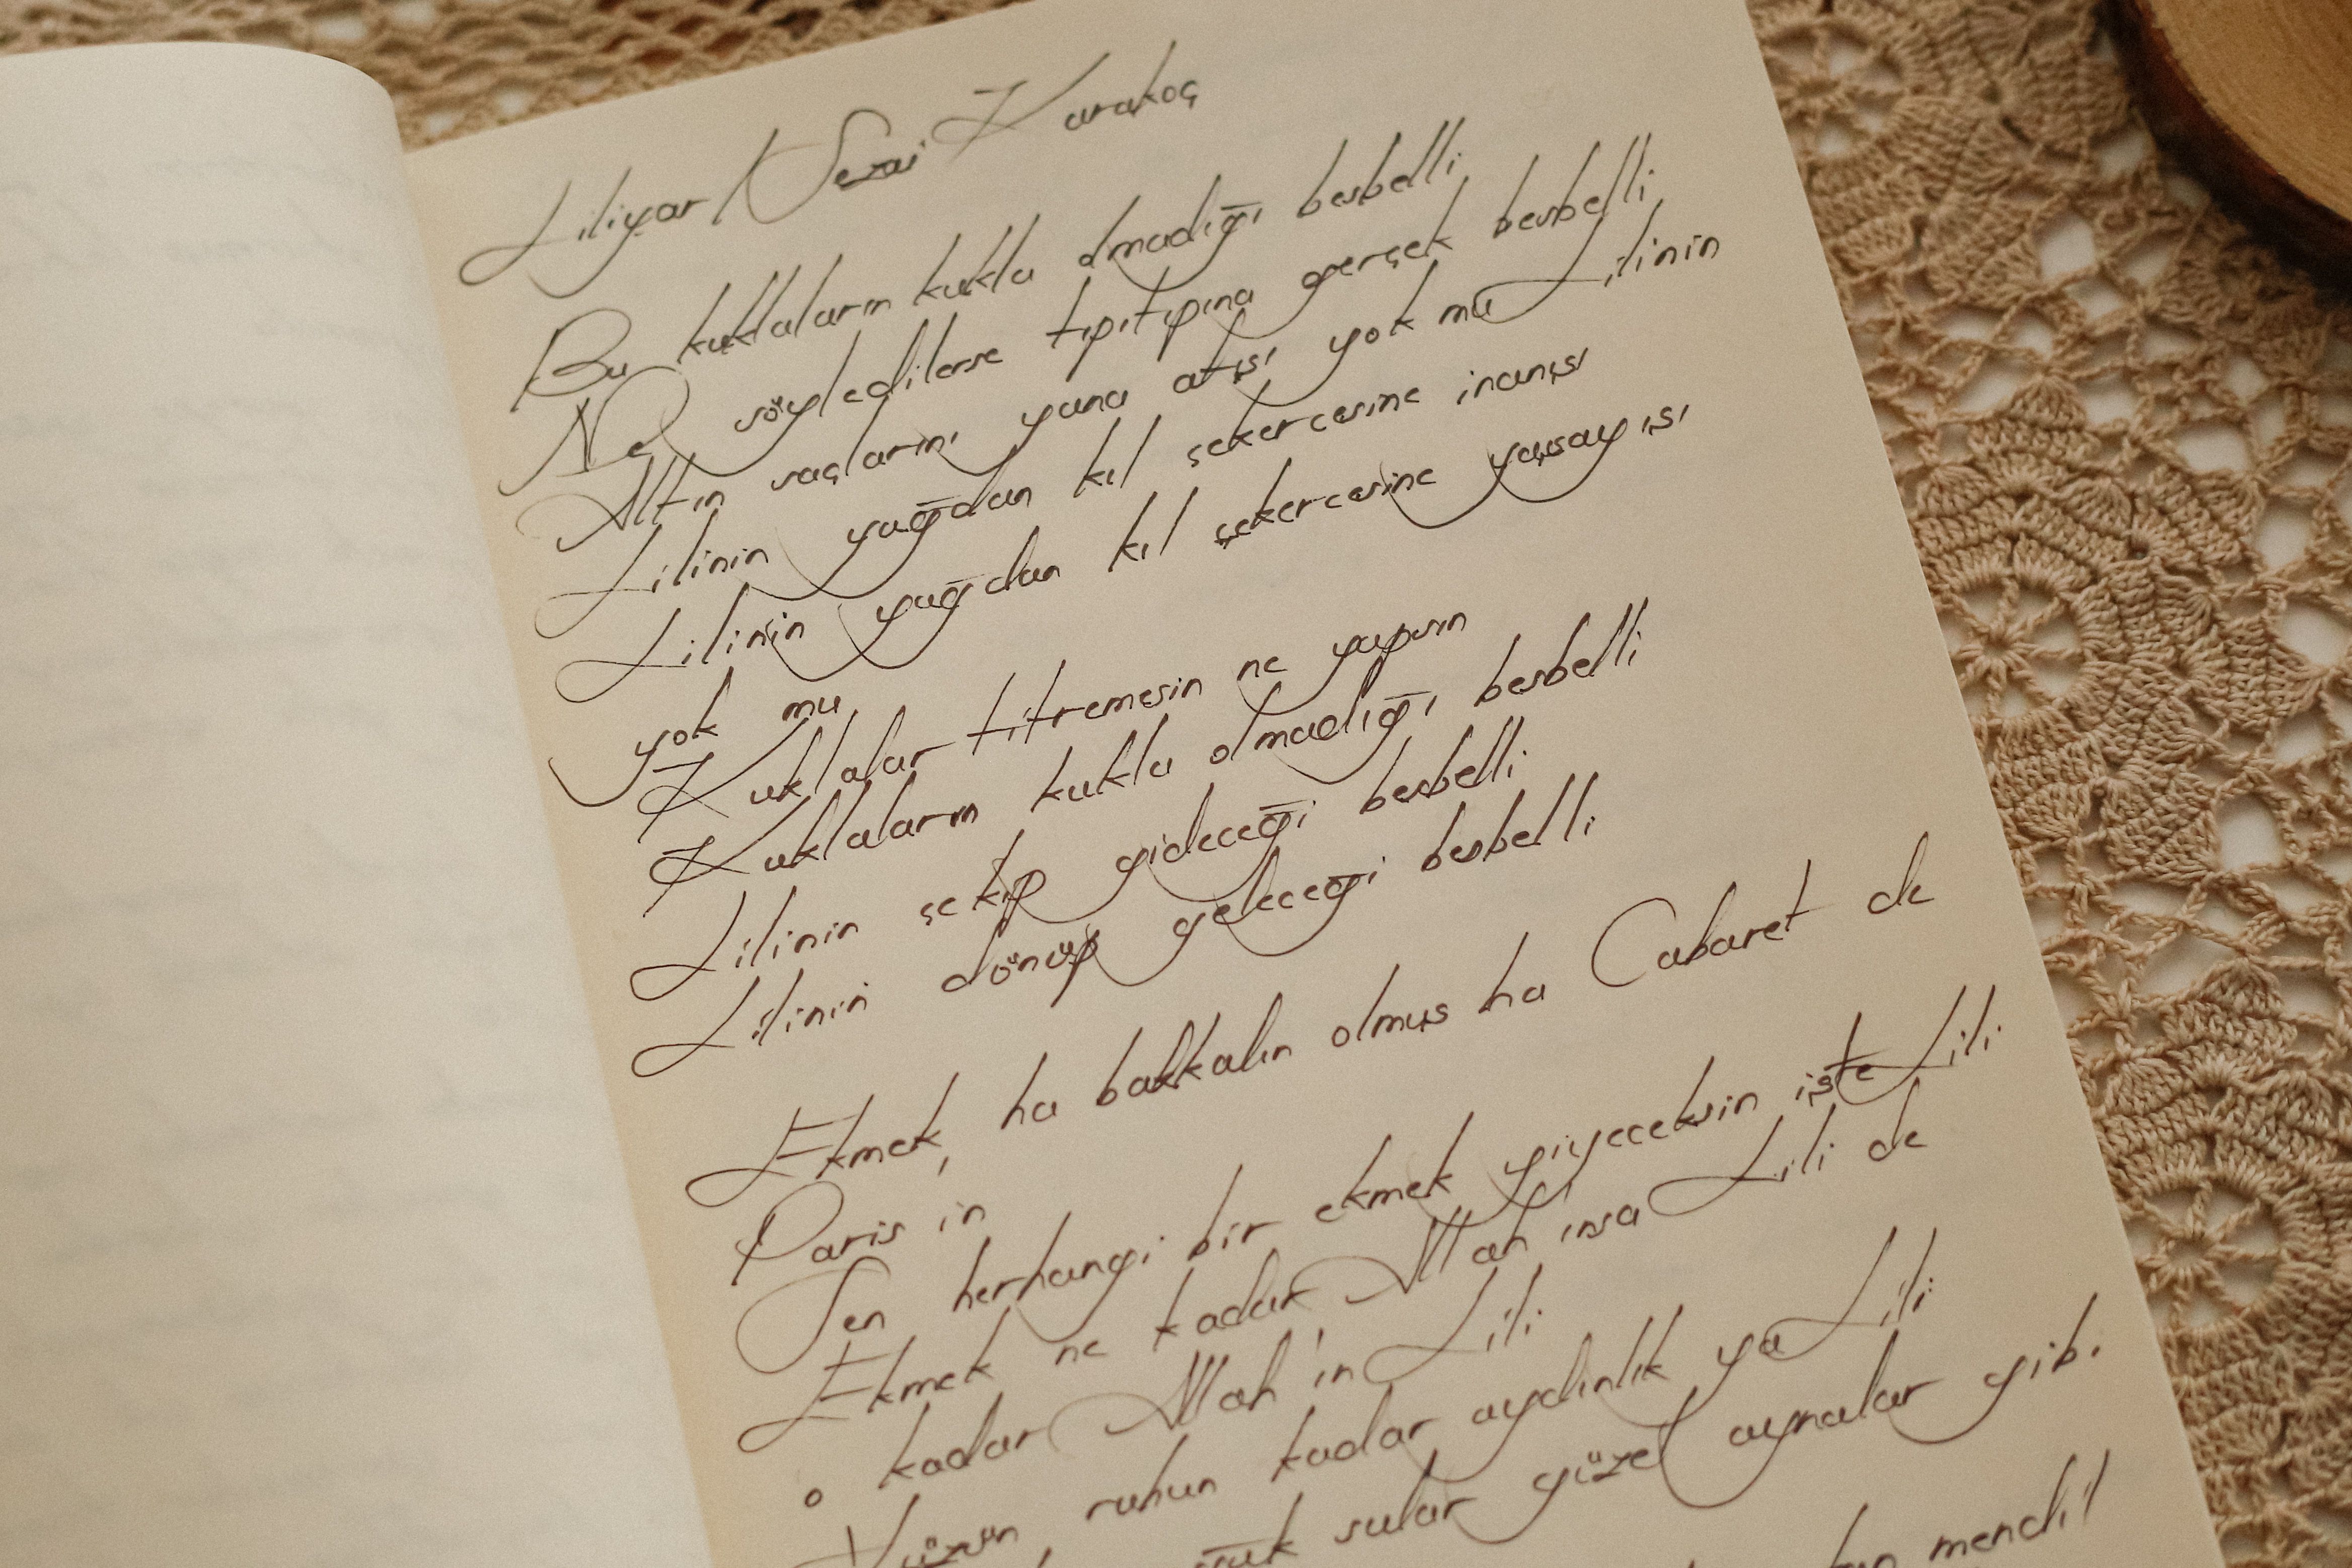 Liliyar / Sezai Karakoç
Bu kuklaların kukla olmadığı besbelli
Ne söyledilerse tıpıtıpına gerçek besbelli
Altın saçlarını yana atışı yok mu Lilinin
Lilinin yağdan kıl çekercesine inanışı
Lilinin yağdan kıl çekercesine yaşayışı
yok mu
Kuklalar titremesin ne yapsın
Kuklaların kukla olmadığı besbelli
Lilinin çekip gideceği besbelli
Lilinin dönüp geleceği besbelli
Ekmek, ha bakkalın olmuş ha Cabaret de
Paris'in
Sen herhangi bir ekmek yiyeceksin işte Lili
Ekmek ne kadar Allah'ınsa Lili de
o kadar Allah'ın Lili
Yüzün ruhun kadar aydınlık ya Lili
sular güzel aynalar gibi
mendil